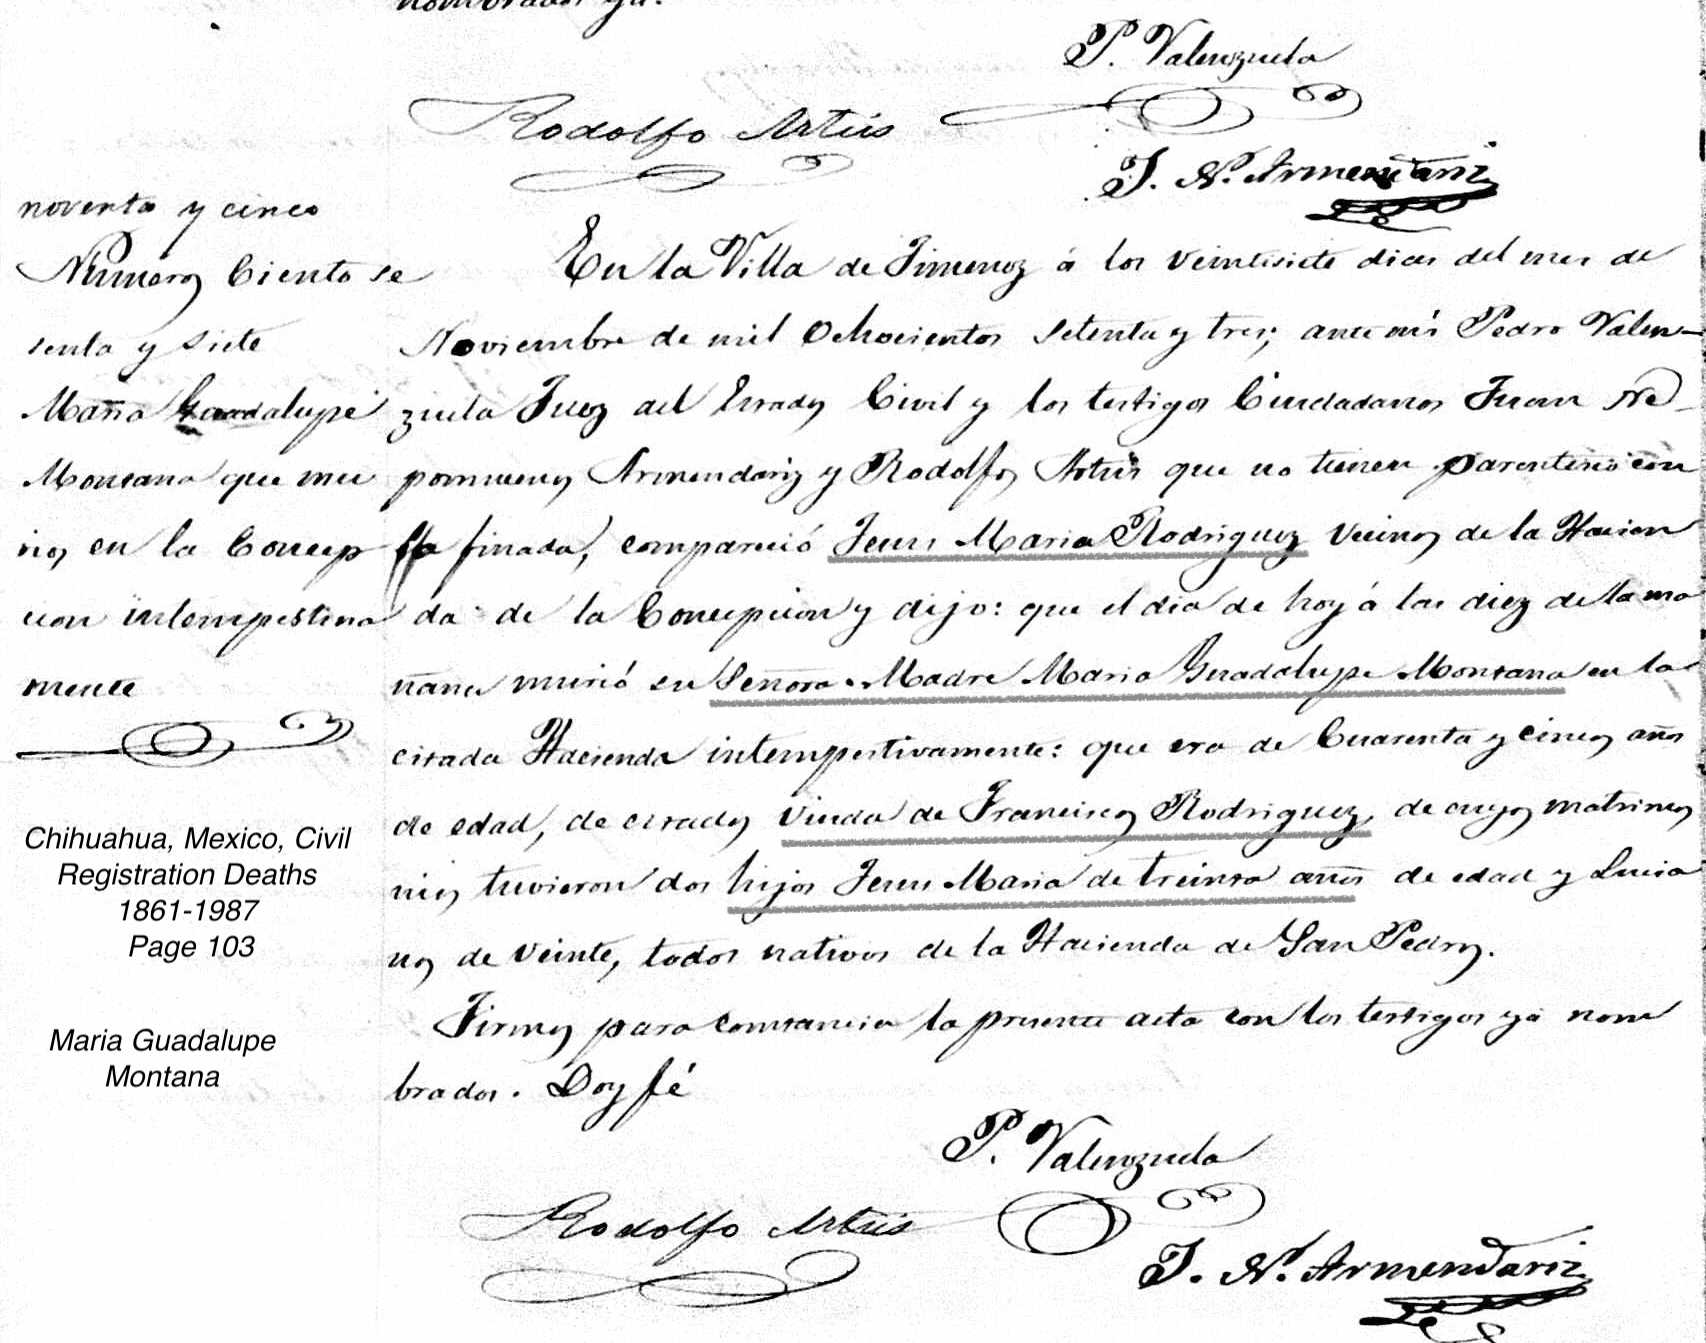 nombrados ya.
P. Valenzuela
Rodolfo Artús
J. N. Armendariz
noventa y cinco
Número Ciento se
senta y siete
Maria Guadalupe
Montana que mu
rio en la Concep
cion intempestiva
mente
En la Villa de Jimenez á los veintisiete dias del mes de
Noviembre de mil Ochocientos setenta y tres; ante mi Pedro Valen-
zuela Juez del Estado Civil y los testigos Ciudadanos Juan Ne-
pomuceno Armendariz y Rodolfo Artús que no tienen parentesco con
la finada, compareció Jesus Maria Rodriguez Vecino de la Hacien
da de la Concepcion y dijo: que el dia de hoy á las diez de la ma
ñana murió su Señora Madre Maria Guadalupe Montana en la
citada Hacienda intempestivamente: que era de Cuarenta y cinco años
de edad, de estado Viuda de Francisco Rodriguez, de cuyo matrimo
nio tuvieron dos hijos Jesus Maria de treinta años de edad y Lucia
no de Veinte, todos nativos de la Hacienda de San Pedro.
Firmo para constancia la presente acta con los testigos ya nom
brados. Doy fé
P. Valenzuela
Rodolfo Artús
J. N. Armendariz
Chihuahua, Mexico, Civil
Registration Deaths
1861-1987
Page 103
Maria Guadalupe
Montana